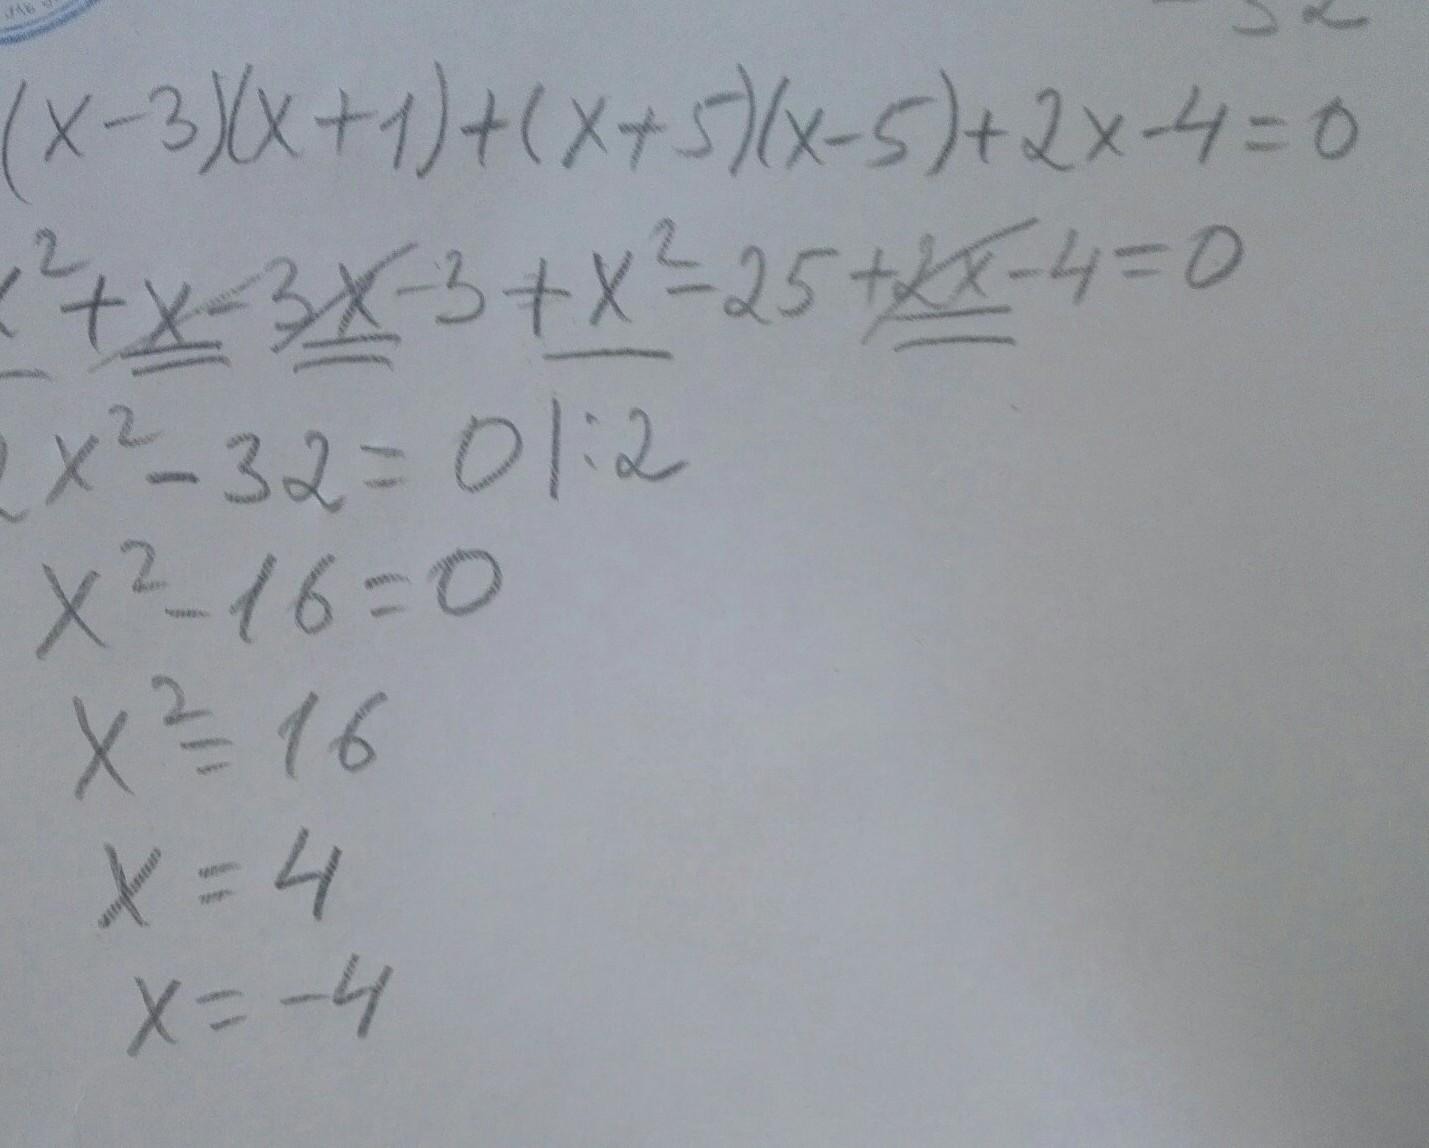 32
(x-3)(x+1)+(x+5)(x-5)+2x-4=0
x²+x-3x-3+x²-25+2x-4=0
2x²-32=0|:2
x²-16=0
x²=16
x=4
x=-4